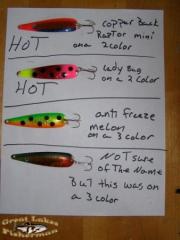 copper Back
Raptor mini
on a 2 color
HOT
Lady Bug
on a 2 color
HOT
anti freeze
melon
on a 3 color
NOT sure
of The Name
But this was on
a 3 color
Great Lakes
Fisherman